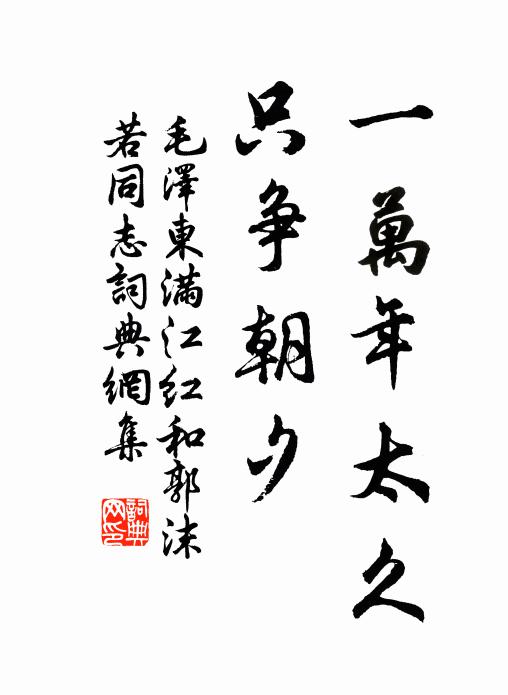 一萬年太久
只争朝夕
毛澤東滿江红和郭沫
若同志詞典網集
詞典
网印